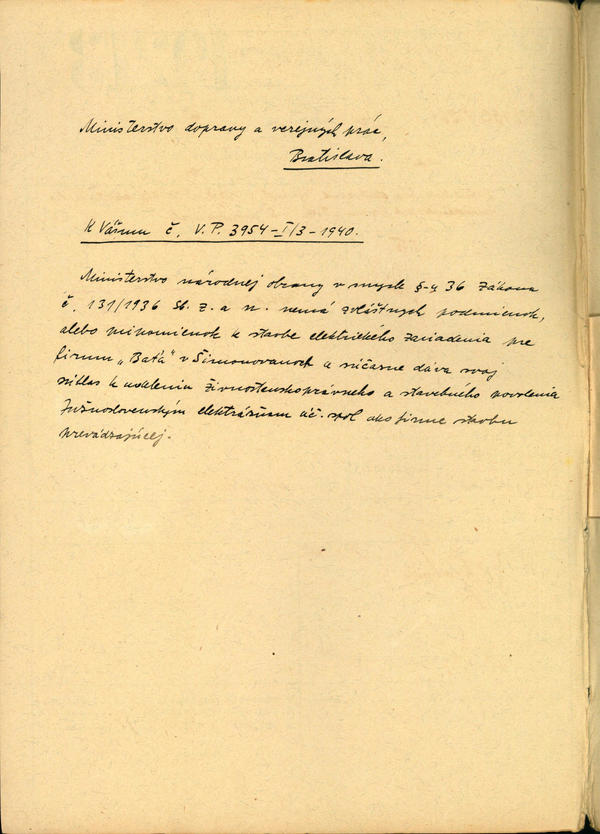 Ministerstvo dopravy a verejných prác,
Bratislava.
K Vášmu č. V.P. 3954-I/3-1940.
Ministerstvo národnej obrany v smysle §-u 36 zákona
č. 131/1936 Sb. z. a n. nemá zvláštnych podmienok,
alebo pripomienok k stavbe elektrického zariadenia pre
firmu „Baťa" v Šimonovanoch a súčasne dáva svoj
súhlas k udeleniu živnostenskoprávneho a stavebného povolenia
Južnoslovenským elektrárňam úč. spol. ako firme stavbu
prevádzajúcej.